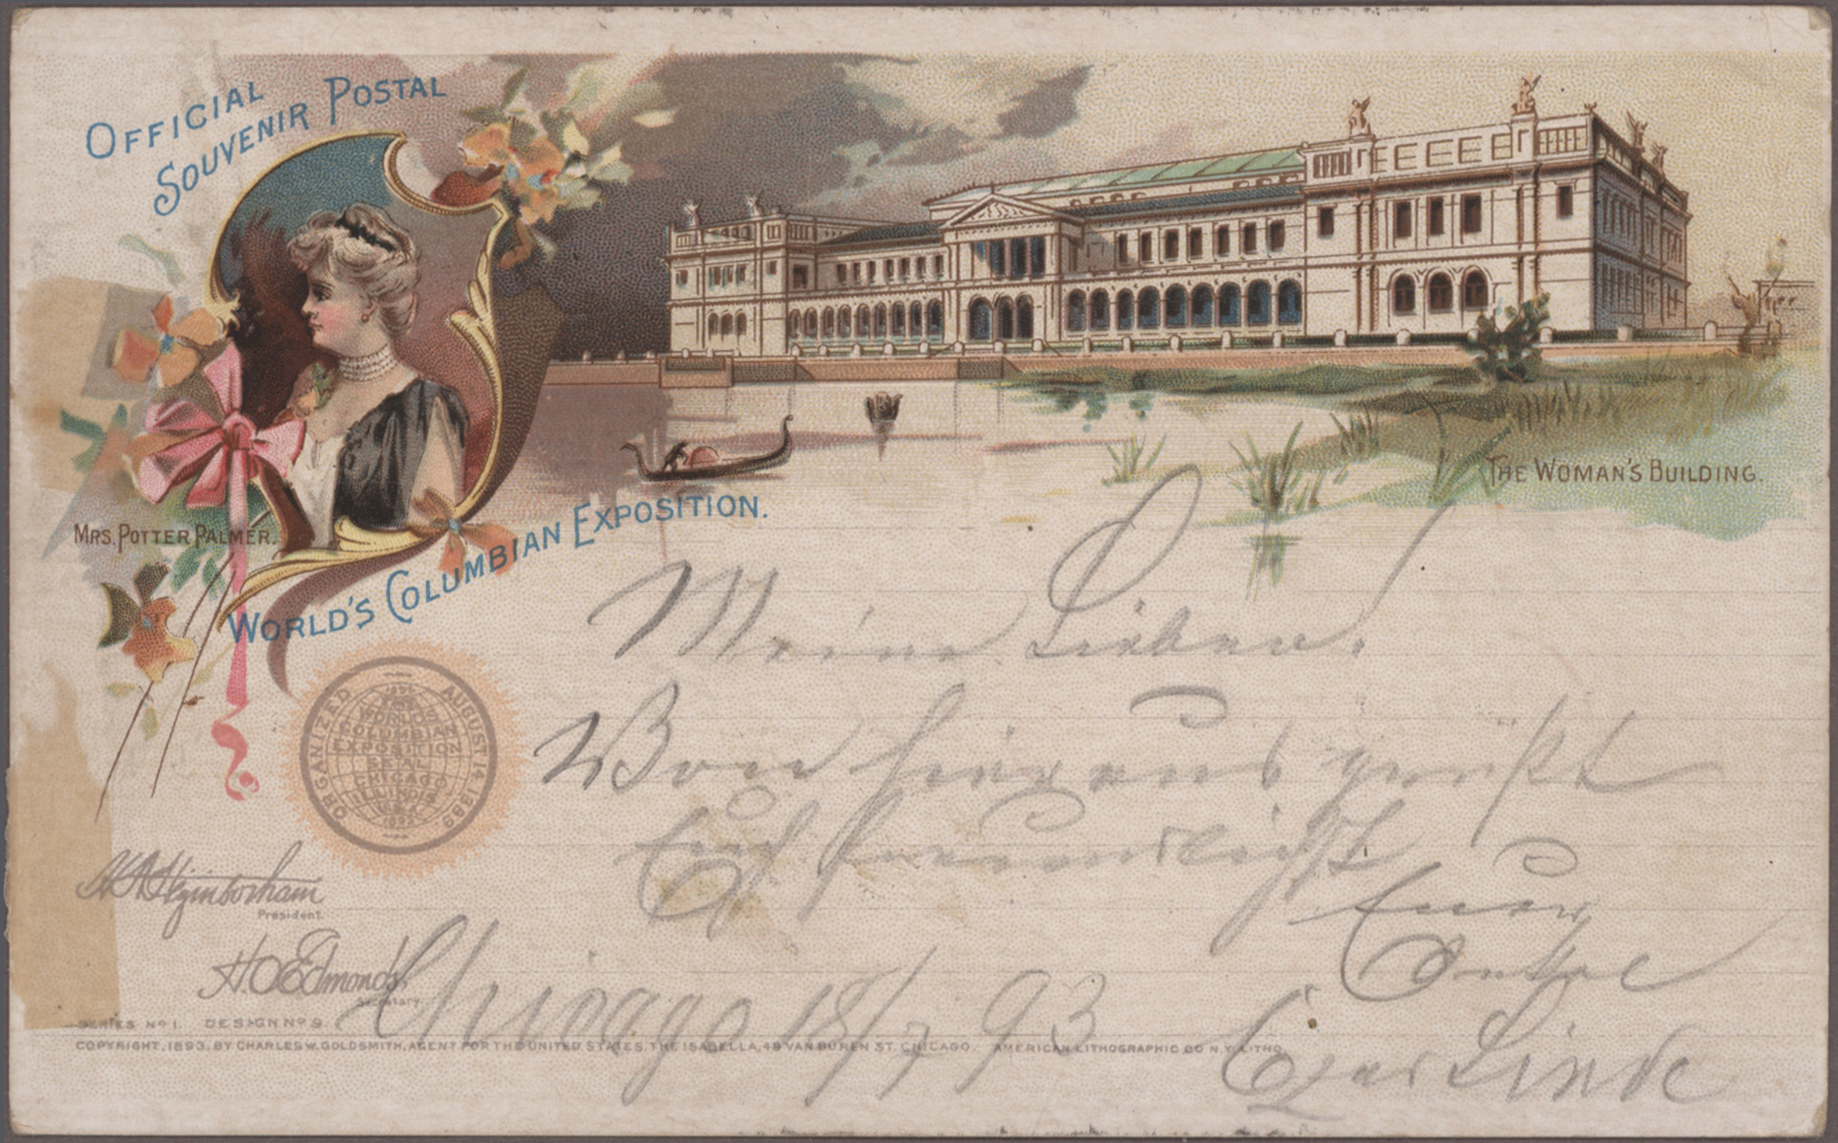 OFFICIAL
SOUVENIR POSTAL
MRS. POTTER PALMER.
WORLD'S COLUMBIAN EXPOSITION.
THE WOMAN'S BUILDING.
Meine Lieben!
Von hier aus grüßt
Euch freundlichst
Euer
Onkel
Linde
Chicago 18/7 93
ORGANIZED AUGUST 14 1889
WORLD'S
COLUMBIAN
EXPOSITION
RETAL
CHICAGO
ILLINOIS
President.
H.O. Edmonds
Secretary.
SERIES No 1. DESIGN No 9.
COPYRIGHT, 1893, BY CHARLES W. GOLDSMITH, AGENT FOR THE UNITED STATES, THE ISABELLA, 48 VAN BUREN ST. CHICAGO. AMERICAN LITHOGRAPHIC CO N.Y. LITHO.